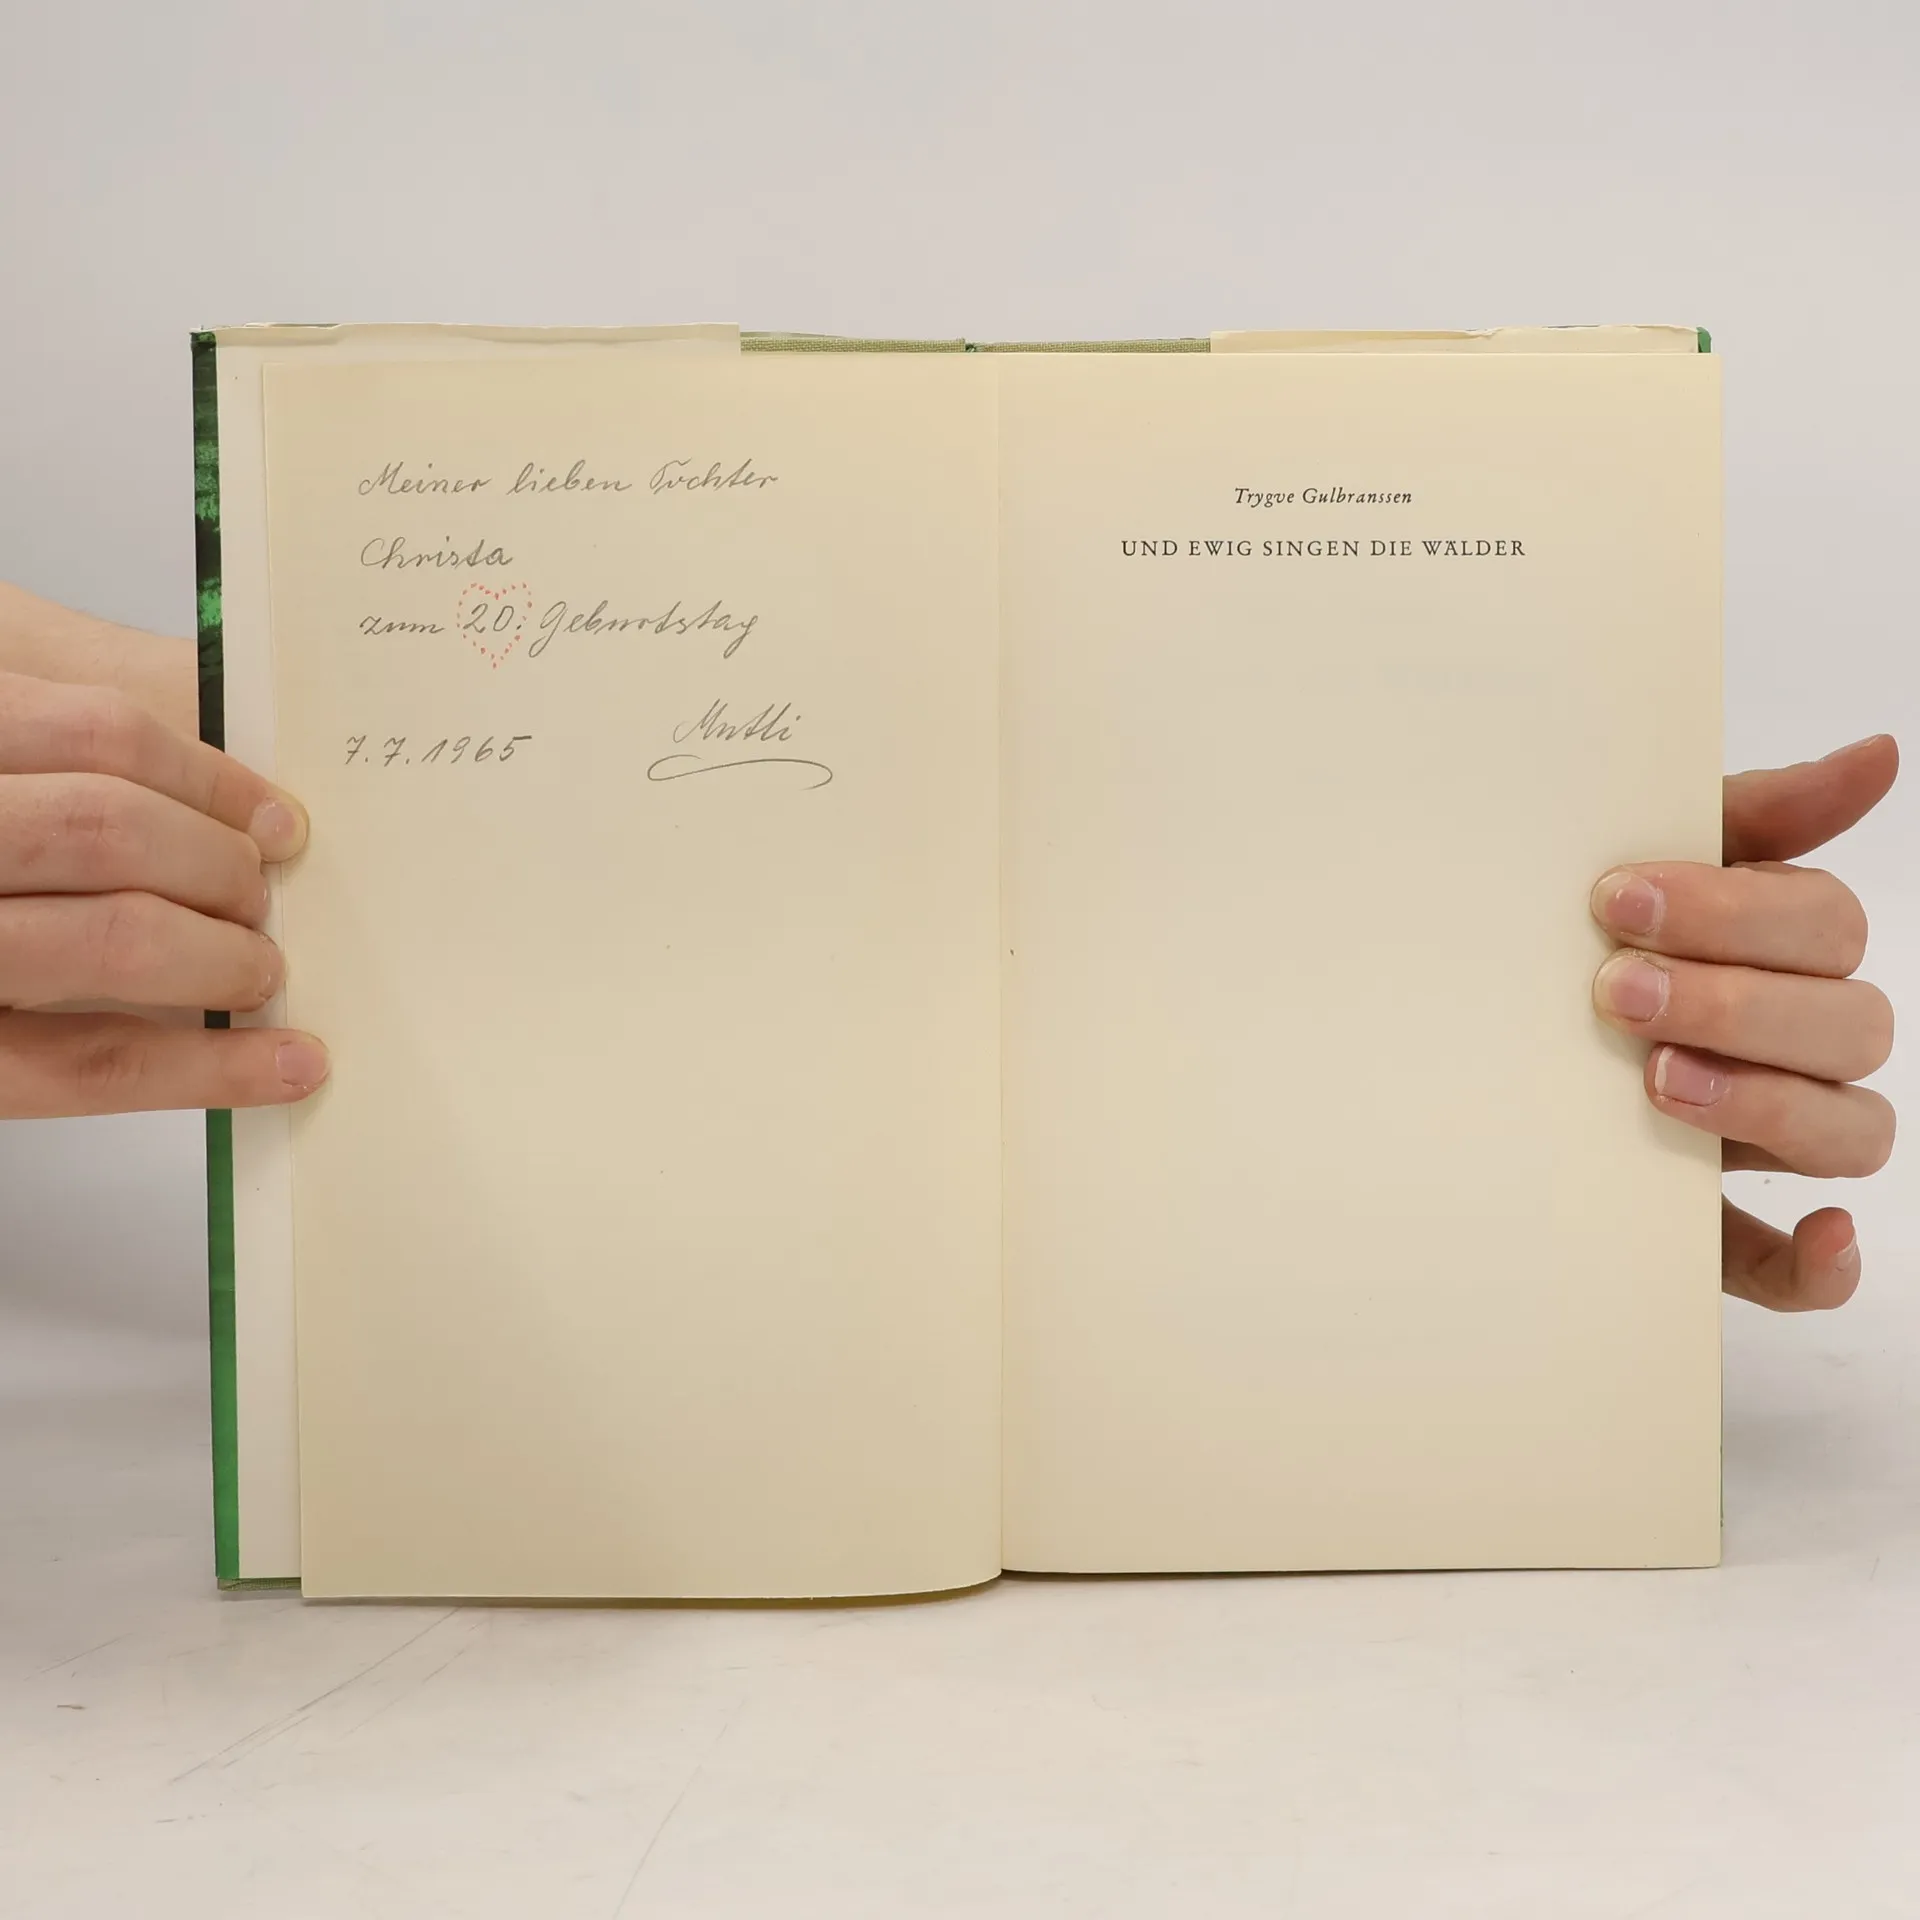 Meiner lieben Tochter
Christa
zum 20. Geburtstag
7.7.1965 Mutti
Trygve Gulbranssen
UND EWIG SINGEN DIE WÄLDER